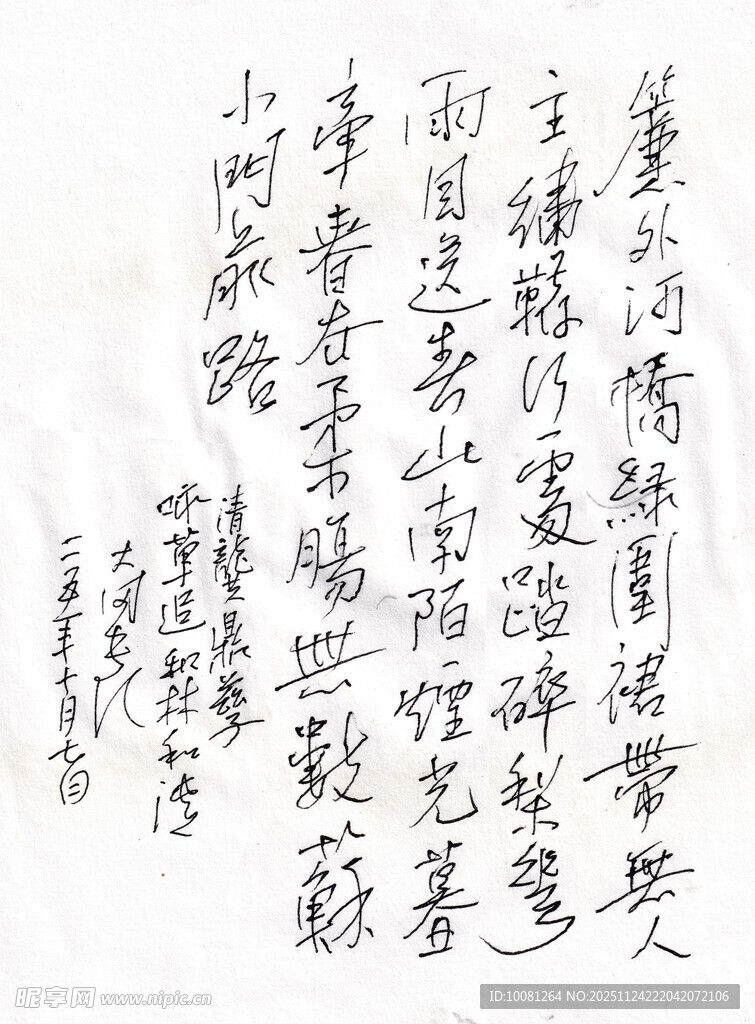 簾外河橋綠圍裙帶無人
主繡鞯行處踏碎梨雲
雨目送春山南陌煙光暮
牽春在柔腸無數蘇
小門前路
清龔鼎孳
咏草追和林和靖
二五年十月七日
昵享网 www.nipic.cn
ID:10081264 NO:20251124222042072106